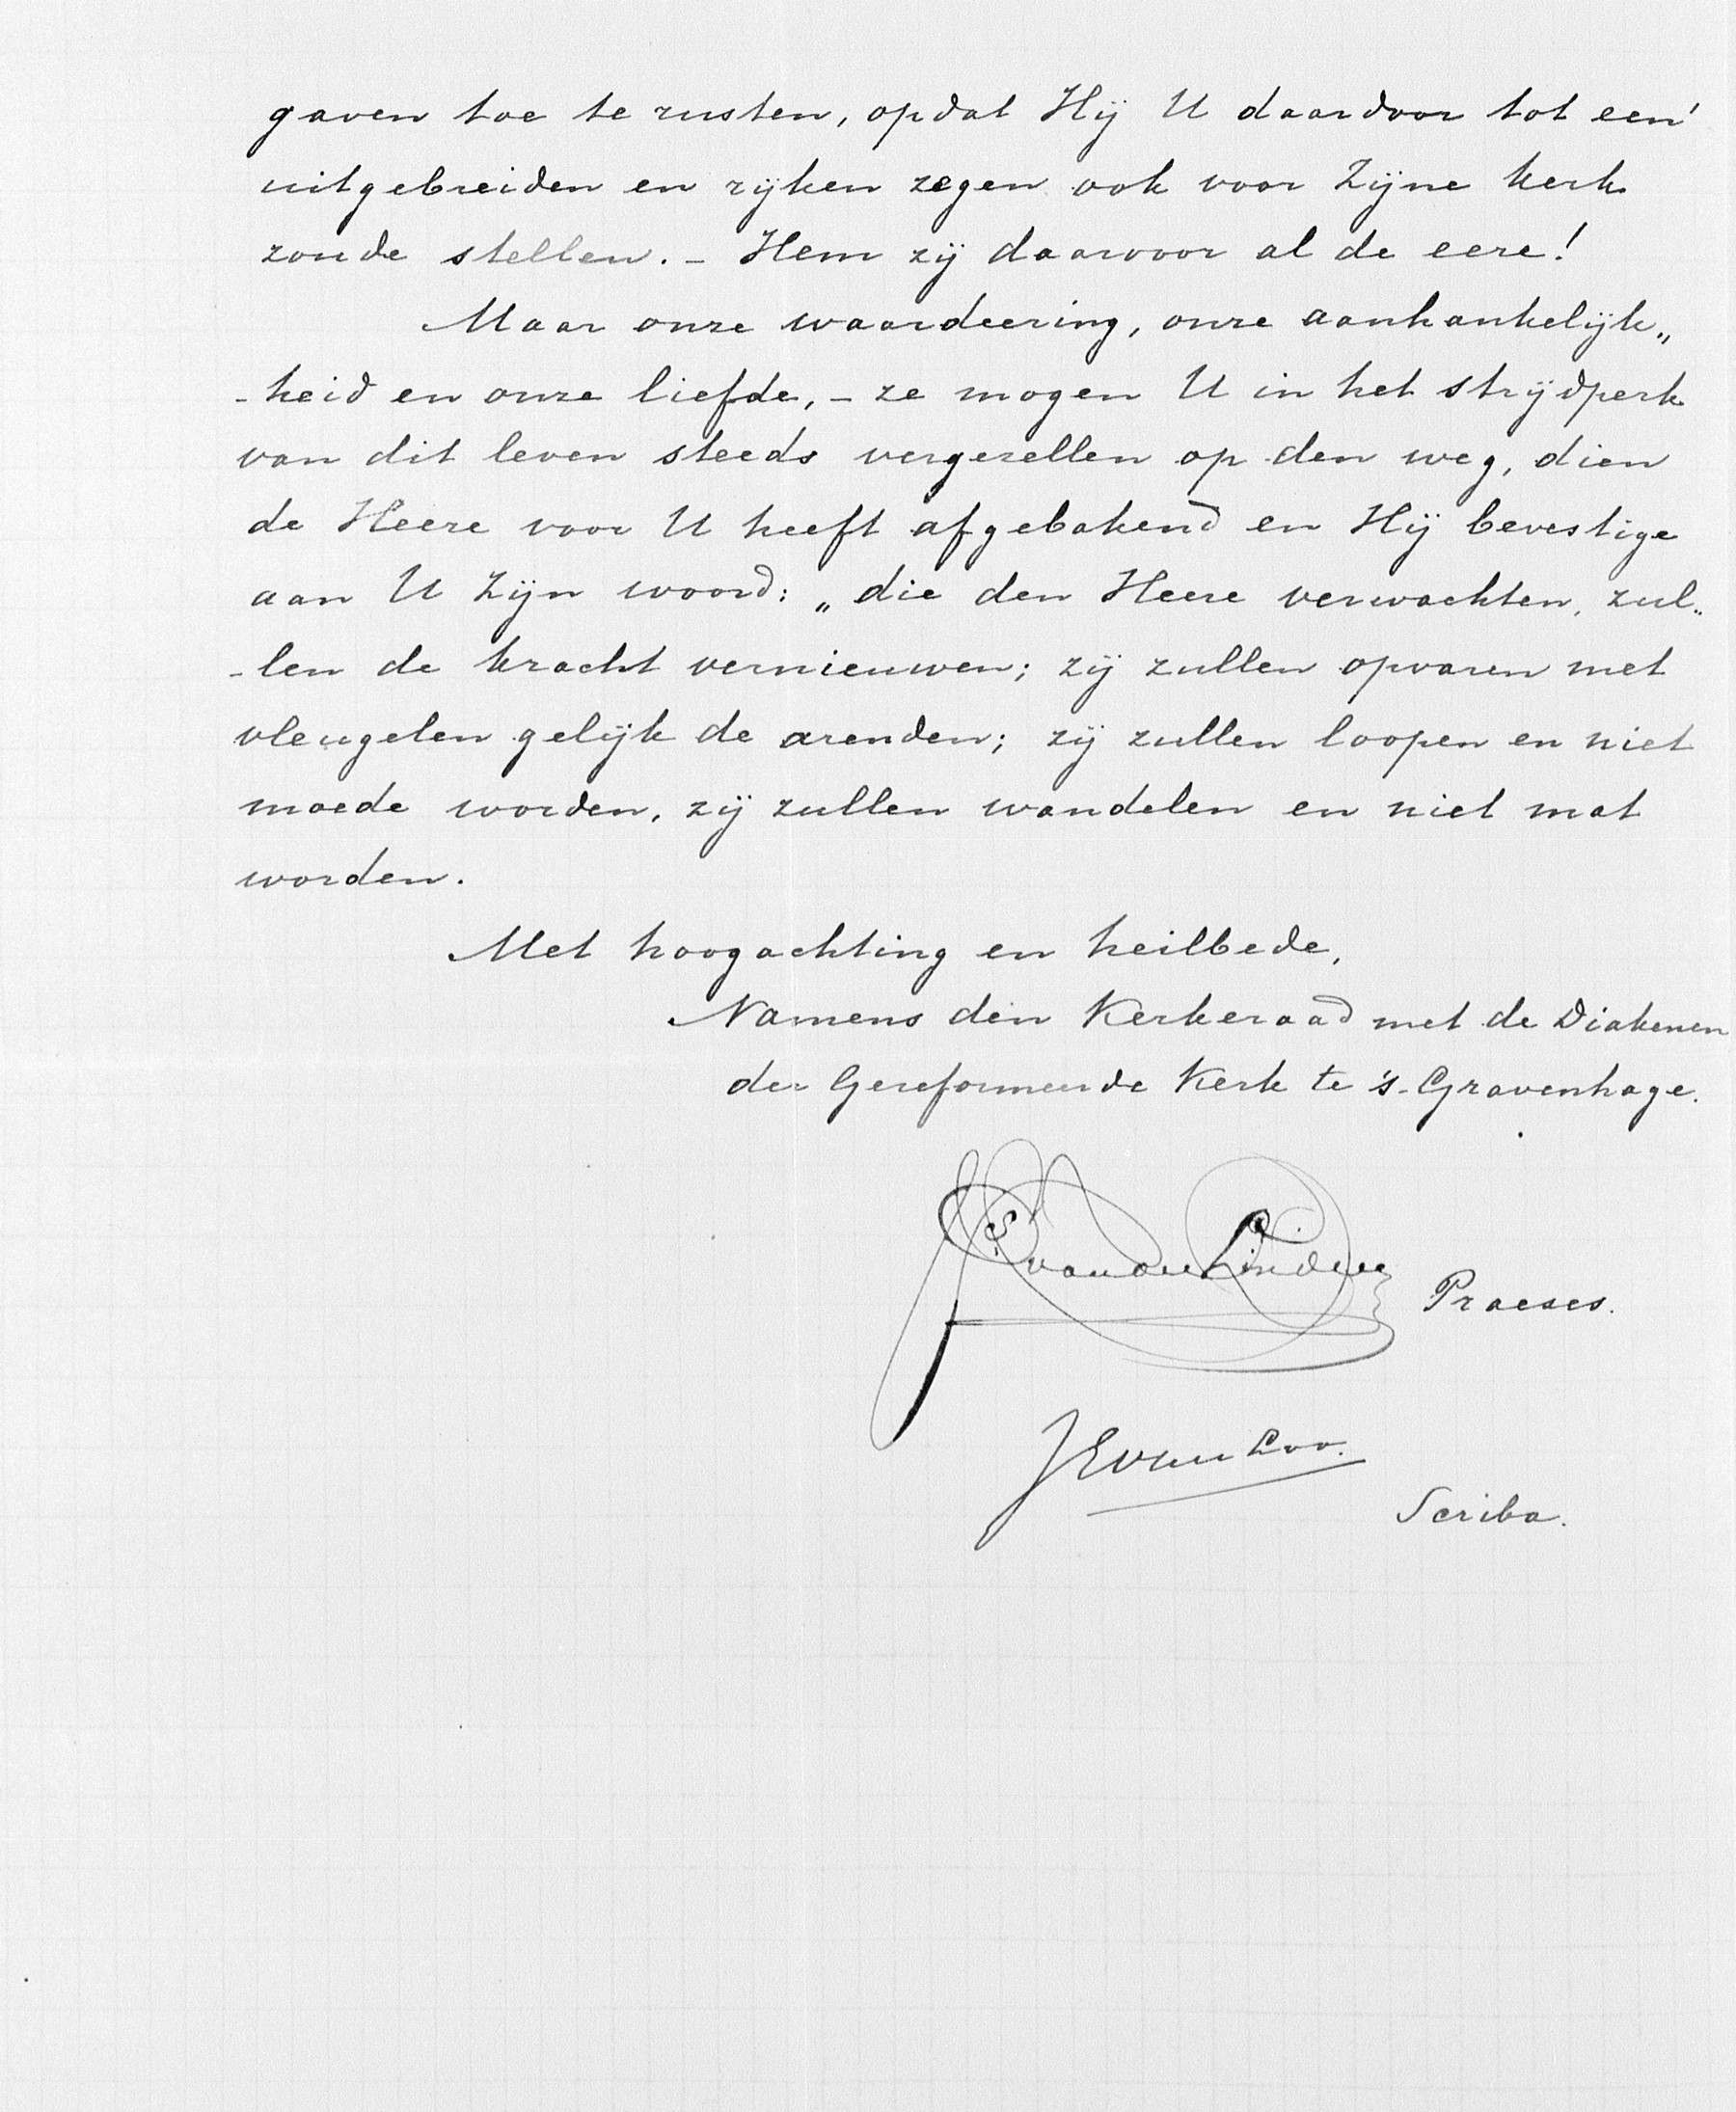 gaven toe te rusten, opdat Hij U daardoor tot een'
uitgebreiden en rijken zegen ook voor Zijne kerk
zoude stellen. – Hem zij daarvoor al de eere!
Maar onze waardeering, onze aanhankelijk„
-heid en onze liefde, – ze mogen U in het strijdperk
van dit leven steeds vergezellen op den weg, dien
de Heere voor U heeft afgebakend en Hij bevestige
aan U Zijn woord: „die den Heere verwachten, zul„
-len de kracht vernieuwen; zij zullen opvaren met
vleugelen gelijk de arenden; zij zullen loopen en niet
moede worden, zij zullen wandelen en niet mat
worden.
Met hoogachting en heilbede,
Namens den Kerkeraad met de Diakenen
der Gereformeerde Kerk te 's-Gravenhage.
van der Linden Praeses.
J E van Loo.
Scriba.